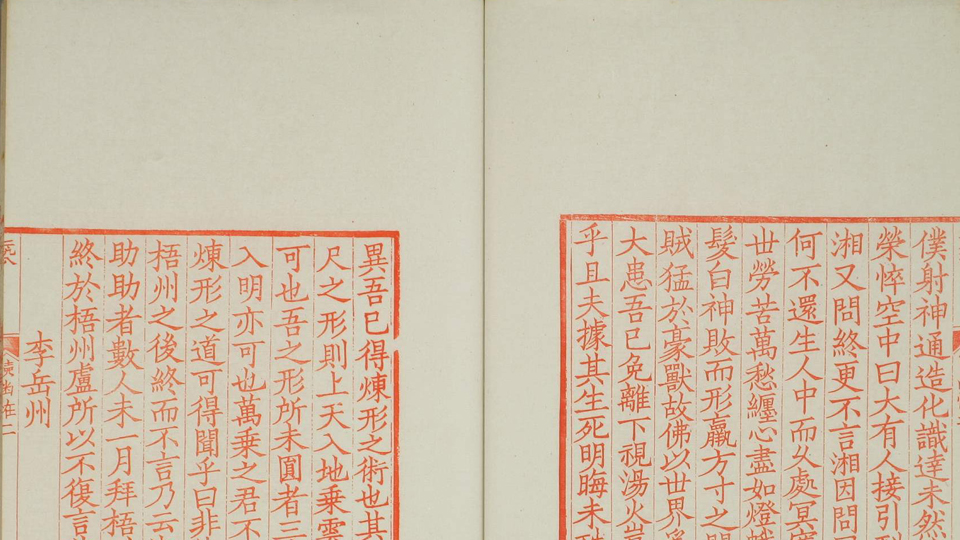 僕射神通造化識達未然
榮悴空中曰大有人接引到
湘又問終更不言湘因問
何不還生人中而乆處冥
世勞苦萬愁纏心盡如燈
髮白神敗而形羸方寸之
賊猛於豪獸故佛以世界
大患吾已免離下視湯火
乎且夫據其生死明晦未
異吾已得煉形之術也其
尺之形則上天入地乗雲
可也吾之形所未圓者三
入明亦可也萬乗之君不
煉形之道可得聞乎曰非
梧州之後終而不言乃云
助助者數人未一月拜梧
終於梧州盧所以不復言
李岳州